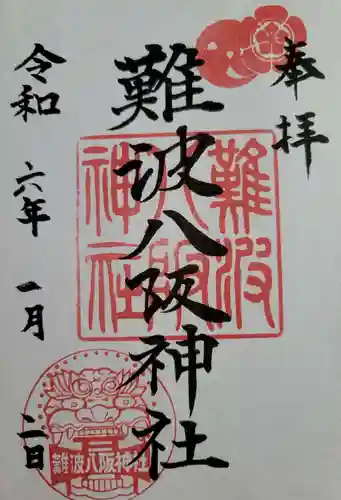 奉拝
難波八阪神社
令和六年一月二日
難波八阪神社
難波八阪神社